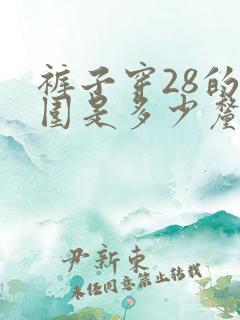 裤子穿28的
围是多少釐
尹新东
未经同意禁止转载